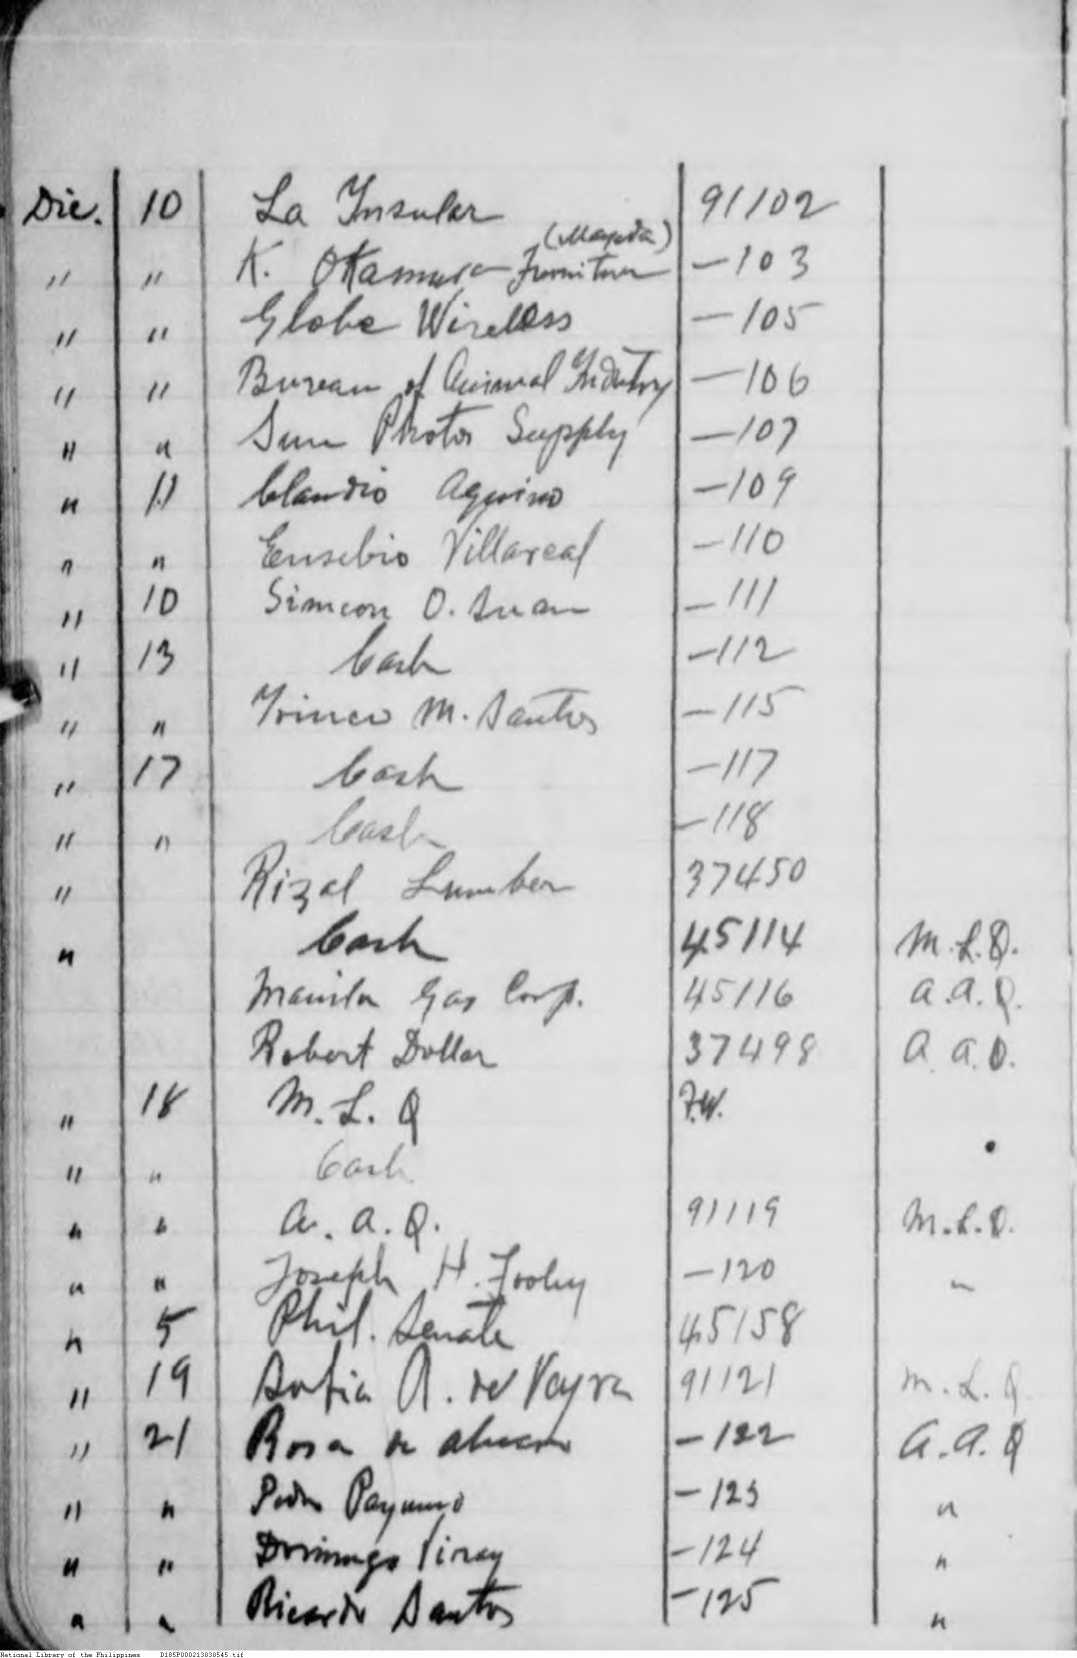 Dic. 10 La Insular 91102
" " K. Okamura Furniture (Mapda) -103
" " Globe Wireless -105
" " Bureau of Animal Industry -106
" " Sun Photo Supply -107
" 11 Claudio Aquino -109
" " Eusebio Villareal -110
" 10 Simeon O. Suan -111
" 13 Cash -112
" " M. Santos -115
" 17 Cash -117
" " Cash -118
" Rizal Lumber 37450
" Cash 45114 M.L.Q.
Manila Gas Corp. 45116 A.A.Q.
Robert Dollar 37498 A.A.Q.
" 18 M.L.Q F.W.
" " Cash
" " A.A.Q. 91119 M.L.Q.
" " Joseph H. Foley -120 "
" 5 Phil. Senate 45158
" 19 Sofia R. de Veyra 91121 M.L.Q
" 21 Rosa de -122 A.A.Q
" " Pedro Payumo -123 "
" " Domingo Viray -124 "
" " Ricardo Santos -125 "
National Library of the Philippines D185P000213830545.tif